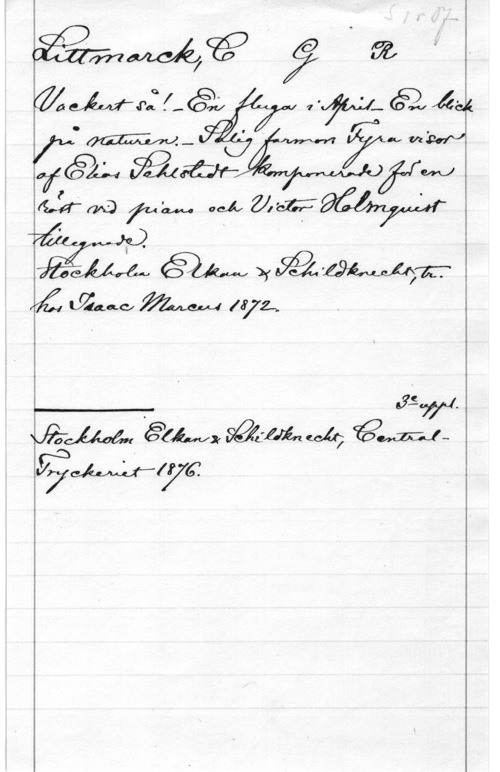 S i r 87
Littmarck, C G R
Vackert så! - En fluga i April - En blick
på naturen. - Salig farmor. Fyra visor
af Elias Sehlstedt komponerade för en
röst vid piano och Victor Holmquist
tillegnade.
Stockholm Elkan & Schildknecht, tr.
hos Isaac Marcus 1872.
3e uppl.
Stockholm Elkan & Schildknecht, Central-
Tryckeriet 1876.